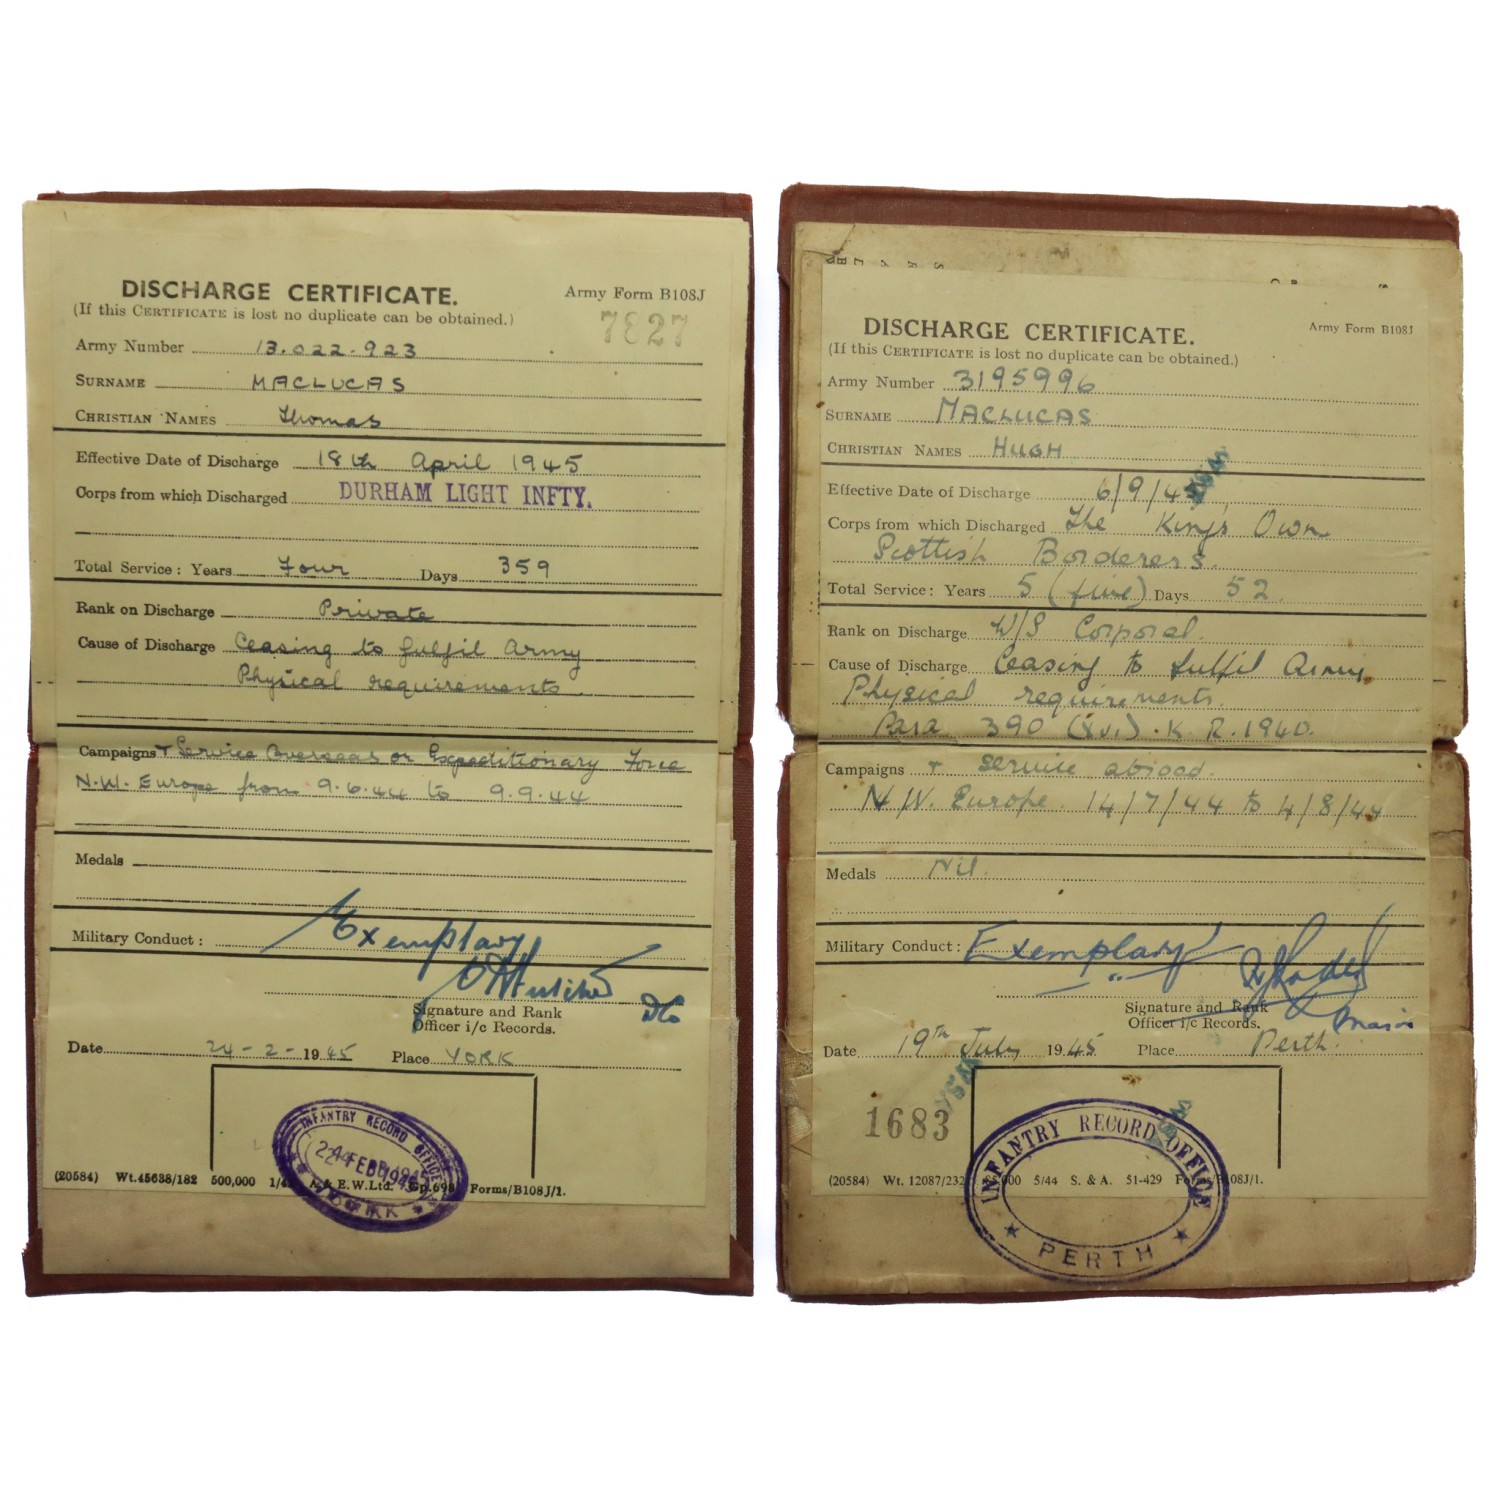 DISCHARGE CERTIFICATE. Army Form B108J
(If this CERTIFICATE is lost no duplicate can be obtained.)
7827
Army Number 13.022.923
SURNAME MACLUCAS
CHRISTIAN NAMES Thomas
Effective Date of Discharge 18th April 1945
Corps from which Discharged DURHAM LIGHT INFTY.
Total Service: Years Four Days 359
Rank on Discharge Private
Cause of Discharge Ceasing to fulfil Army
Physical requirements
Campaigns + Service Overseas or Expeditionary Force
N.W. Europe from 9.6.44 to 9.9.44
Medals
Military Conduct: Exemplary
Signature and Rank
Officer i/c Records.
Date 24-2-1945 Place YORK
INFANTRY RECORD OFFICE
24 FEB 1945
YORK
(20584) Wt.45638/182 500,000 A.& E.W.Ltd. Gp.698 Forms/B108J/1.
DISCHARGE CERTIFICATE. Army Form B108J
(If this CERTIFICATE is lost no duplicate can be obtained.)
Army Number 3195996
SURNAME MACLUCAS
CHRISTIAN NAMES HUGH
Effective Date of Discharge 6/9/45
Corps from which Discharged The King's Own
Scottish Borderers.
Total Service: Years 5 (five) Days 52.
Rank on Discharge W/S Corporal.
Cause of Discharge Ceasing to fulfil Army
Physical requirements.
Para 390 (xvi). K.R. 1940.
Campaigns + service abroad.
N.W. Europe. 14/7/44 to 4/8/44
Medals Nil.
Military Conduct: Exemplary
Signature and Rank
Officer i/c Records. Major
Date 19th July 1945 Place Perth.
1683
INFANTRY RECORD OFFICE
PERTH
(20584) Wt. 12087/232 5/44 S. & A. 51-429